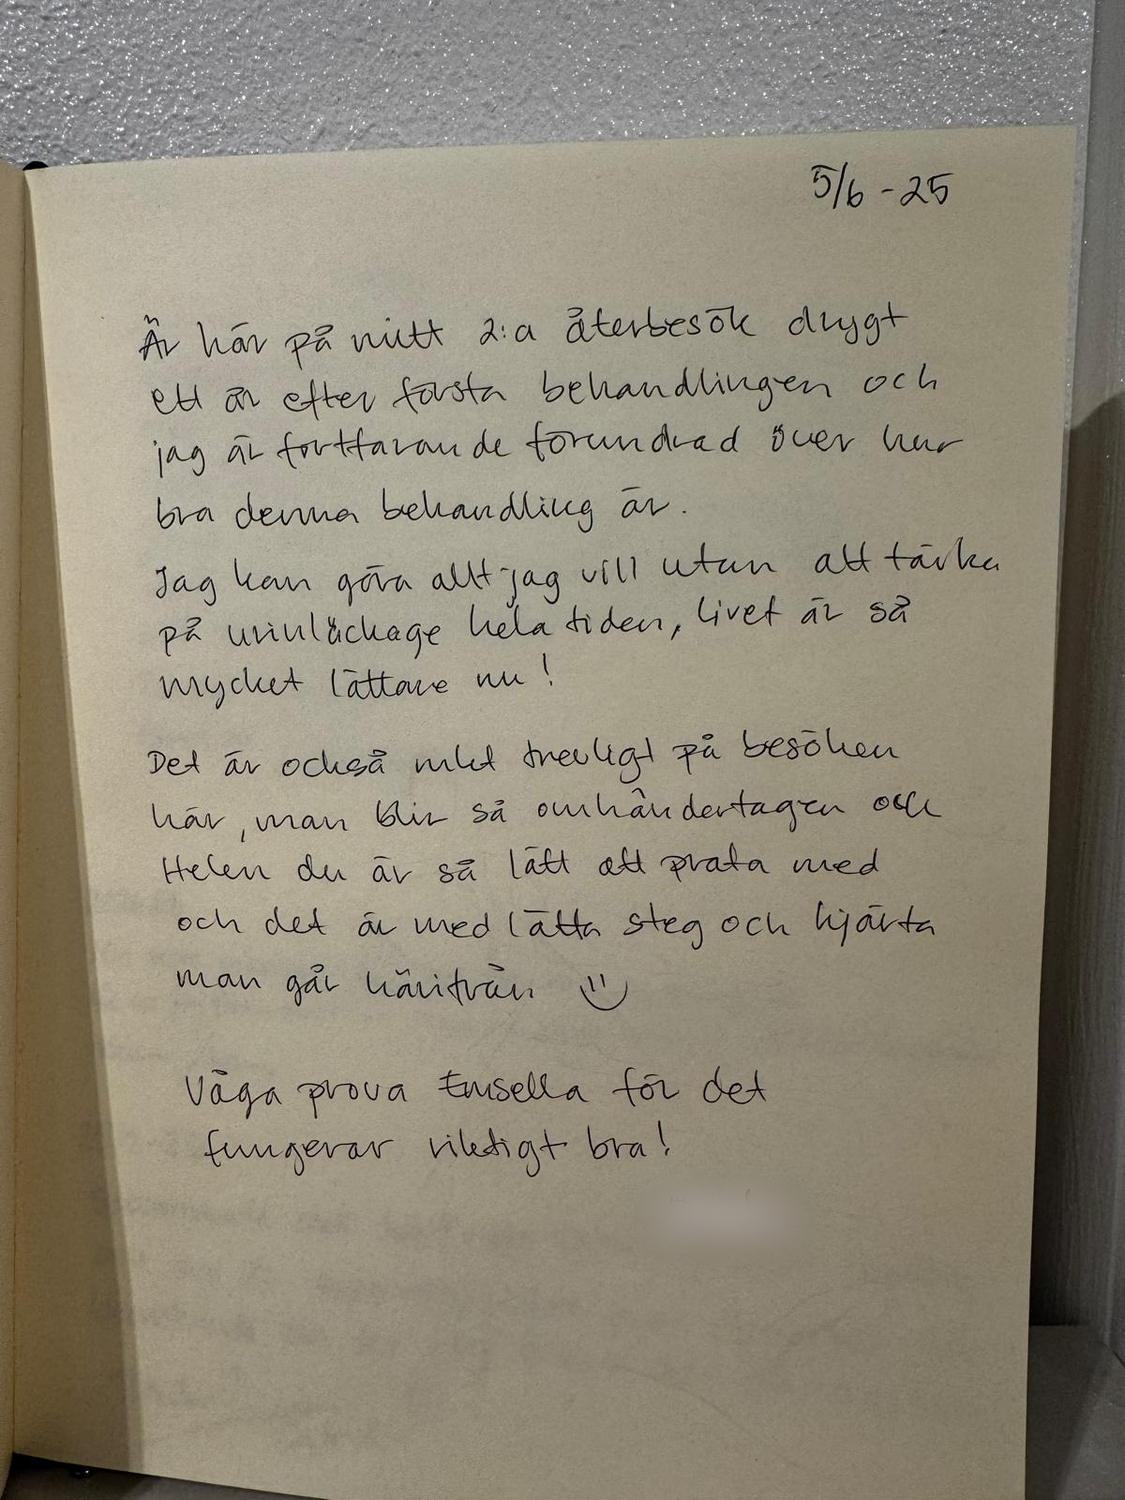 5/6 - 25
Är här på mitt 2:a återbesök drygt
ett år efter första behandlingen och
jag är fortfarande förundrad över hur
bra denna behandling är.
Jag kan göra allt jag vill utan att tänka
på urinläckage hela tiden, livet är så
mycket lättare nu!
Det är också mkt trevligt på besöken
här, man blir så omhändertagen och
Helen du är så lätt att prata med
och det är med lätta steg och hjärta
man går härifrån
Våga prova Emsella för det
fungerar riktigt bra!